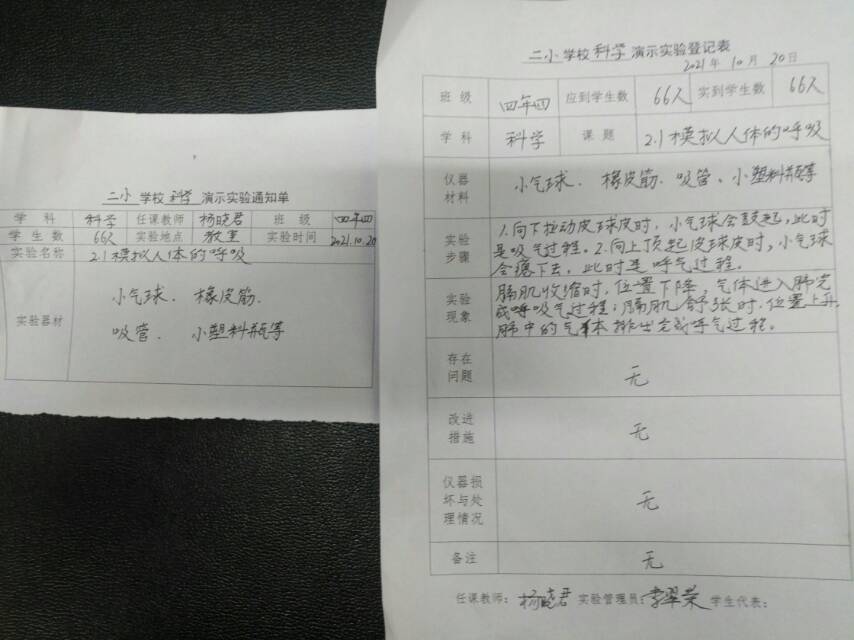 二小学校科学演示实验通知单
学科 科学 任课教师 杨晓君 班级 四年四
学生数 66人 实验地点 教室 实验时间 2021.10.20
实验名称 2.1模拟人体的呼吸
实验器材
小气球、橡皮筋、
吸管、小塑料瓶等
二小学校科学演示实验登记表
2021年10月20日
班级 四年四 应到学生数 66人 实到学生数 66人
学科 科学 课题 2.1模拟人体的呼吸
仪器材料 小气球、橡皮筋、吸管、小塑料瓶等
实验步骤
1.向下拉动皮球皮时,小气球会鼓起,此时
是吸气过程。2.向上顶起皮球皮时,小气球
会瘪下去,此时是呼气过程。
实验现象
膈肌收缩时,位置下降,气体进入肺完
成呼吸气过程;膈肌舒张时,位置上升
肺中的气体排出完成呼气过程。
存在问题 无
改进措施 无
仪器损坏与处理情况 无
备注 无
任课教师:杨晓君 实验管理员:李翠荣 学生代表: